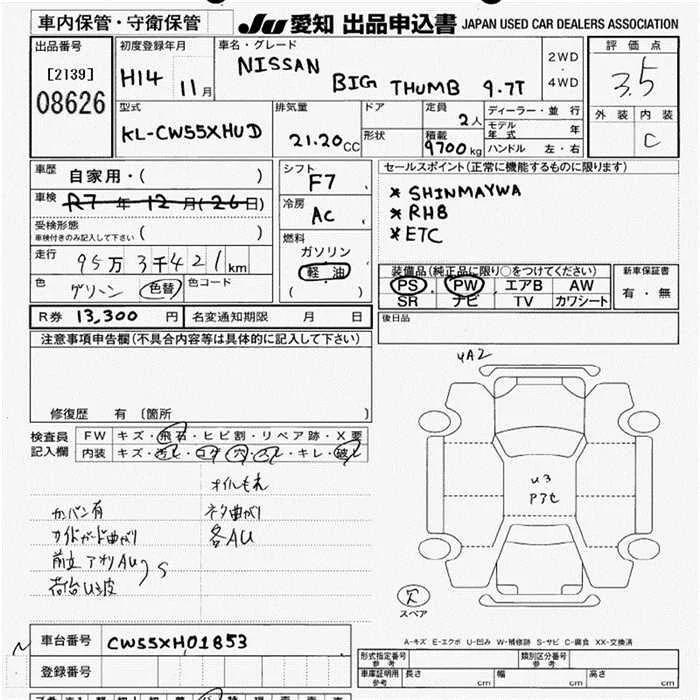 車内保管・守衛保管
JU 愛知 出品申込書 JAPAN USED CAR DEALERS ASSOCIATION
出品番号
[2139]
08626
初度登録年月
H14 11月
車名・グレード
NISSAN
BIG THUMB 9.7T
2WD
・
4WD
評価点
3.5
外装 内装
C
型式
KL-CW55XHUD
排気量
21.20CC
ドア
形状
定員
2人
積載
9700kg
ディーラー・並行
モデル年式 年
ハンドル 左・右
車歴
自家用・( )
車検
R7年12月(26日)
受検形態
車検付きのみ記入して下さい ( )
走行
95万3千421km
色
グリーン 色替 色コード
シフト
F7
冷房
AC
燃料
ガソリン
軽油
( )
セールスポイント(正常に機能するものに限ります)
* SHINMAYWA
* RHB
* ETC
装備品(純正品に限り○をつけてください)
PS PW エアB AW
SR ナビ TV カワシート
新車保証書
有・無
R券 13,300 円 名変通知期限 月 日
後日品
注意事項申告欄(不具合内容等は具体的に記入して下さい)
修復歴 有 〔箇所 〕
検査員
記入欄
FW キズ・飛石・ヒビ割・リペア跡・X要
内装 キズ・汚レ・コゲ・穴・スレ・キレ・破レ
オイルもれ
カバン有 ネタ曲がり
サイドガード曲がり 各AU
荷台U3波
S
YA2
U3
欠
スペア
A-キズ E-エクボ U-凹み W-補修跡 S-サビ C-腐食 XX-交換済
車台番号 CW55XH01853
登録番号
形式指定番号
参考
類別区分番号
参考
車庫証明用
参考
長さ cm 幅 cm 高さ cm